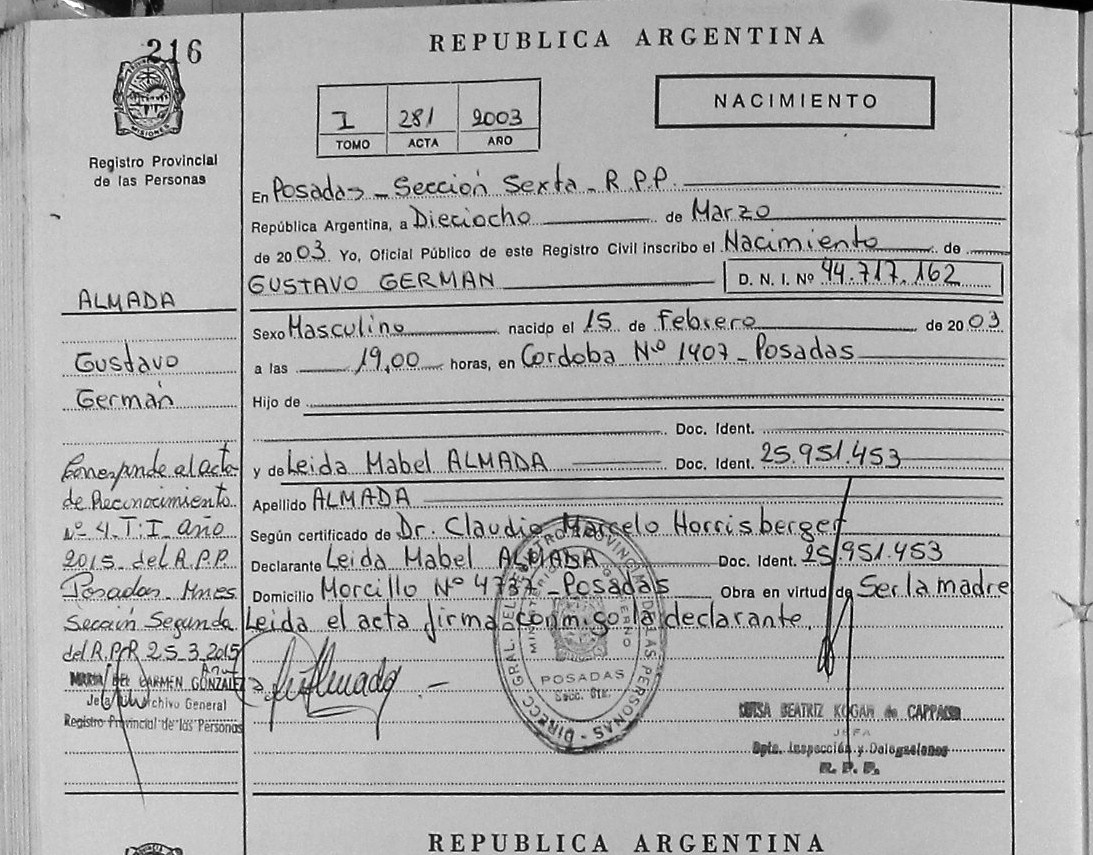 216
MISIONES
Registro Provincial
de las Personas
REPUBLICA ARGENTINA
I 281 2003
TOMO ACTA AÑO
NACIMIENTO
En Posadas - Sección Sexta - R.P.P.
República Argentina, a Dieciocho de Marzo
de 2003. Yo, Oficial Público de este Registro Civil inscribo el Nacimiento de
GUSTAVO GERMAN D. N. I. Nº 44.717.162
Sexo Masculino nacido el 15 de Febrero de 2003
a las 19,00 horas, en Cordoba Nº 1407 - Posadas
Hijo de
Doc. Ident.
y de Leida Mabel ALMADA Doc. Ident. 25.951.453
Apellido ALMADA
Según certificado de Dr. Claudio Marcelo Horrisberger
Declarante Leida Mabel ALMADA Doc. Ident. 25.951.453
Domicilio Morcillo Nº 4737 - Posadas Obra en virtud de Ser la madre
Leida el acta firma conmigo la declarante.
ALMADA
Gustavo
Germán
Corresponde al acta
de Reconocimiento
Nº 4 - T: I - Año
2015 - del R.P.P.
Posadas - Mnes
Sección Segunda
del R.P.P. 25-3-2015
MARIA DEL CARMEN GONZALEZ
Jefa Archivo General
Registro Provincial de las Personas
DIRECC. GRAL. DEL REGISTRO PROVINCIAL DE LAS PERSONAS
MINISTERIO GOBIERNO
POSADAS
Secc. 6ta.
LUISA BEATRIZ KOGAN de CAPPASSO
JEFA
Dpto. Inspección y Delegaciones
R. P. P.
REPUBLICA ARGENTINA